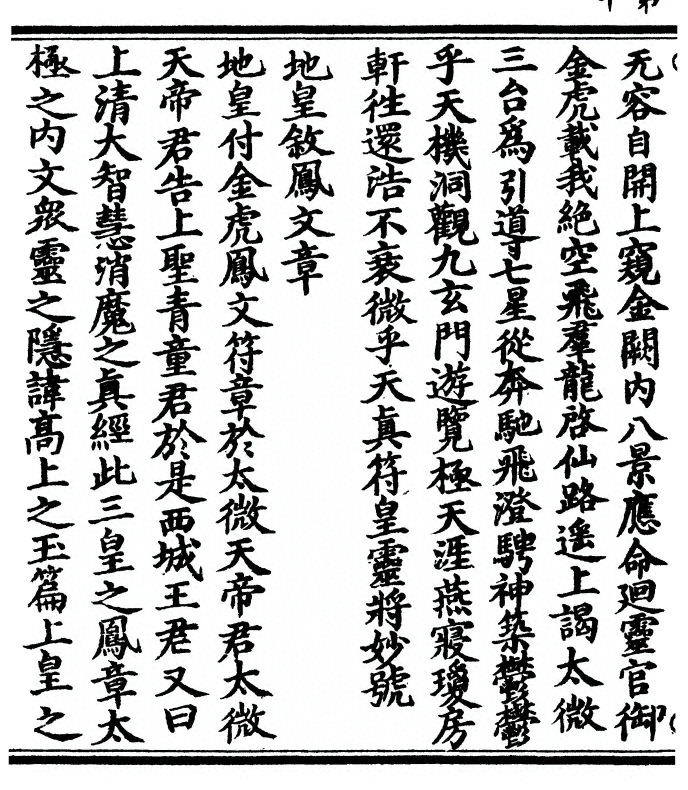 无容自開上窺金闕內八景應命廻靈官御
金虎載我絕空飛羣龍啓仙路遥上謁太微
三台爲引道七星從奔馳飛澄騁神築鬱鬱
乎天機洞觀九玄門遊覽極天涯燕寢瓊房
軒徃還浩不衰微乎天眞符皇靈將妙號
地皇敘鳳文章
地皇付金虎鳳文符章於太微天帝君太微
天帝君告上聖青童君於是西城王君又曰
上清大智慧消魔之眞經此三皇之鳳章太
極之内文衆靈之隱諱髙上之玉篇上皇之